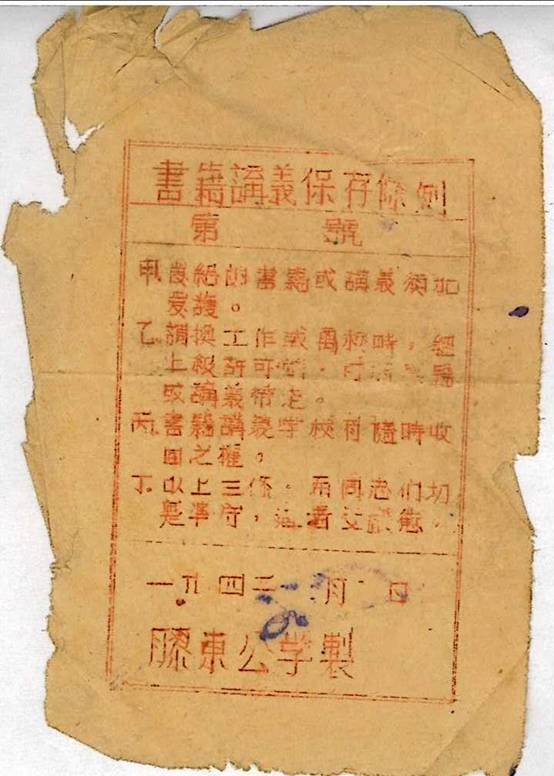 書籍講義保存條例
第 號
甲、發給的書籍或講義須加
愛護。
乙、調換工作或離校時，經
上級許可時，可將書籍
或講義帶走。
丙、書籍講義學校有隨時收
回之權。
丁、以上三條。希同志們切
是準守，違者交議處。
一九四二 月 日
膠東公學製